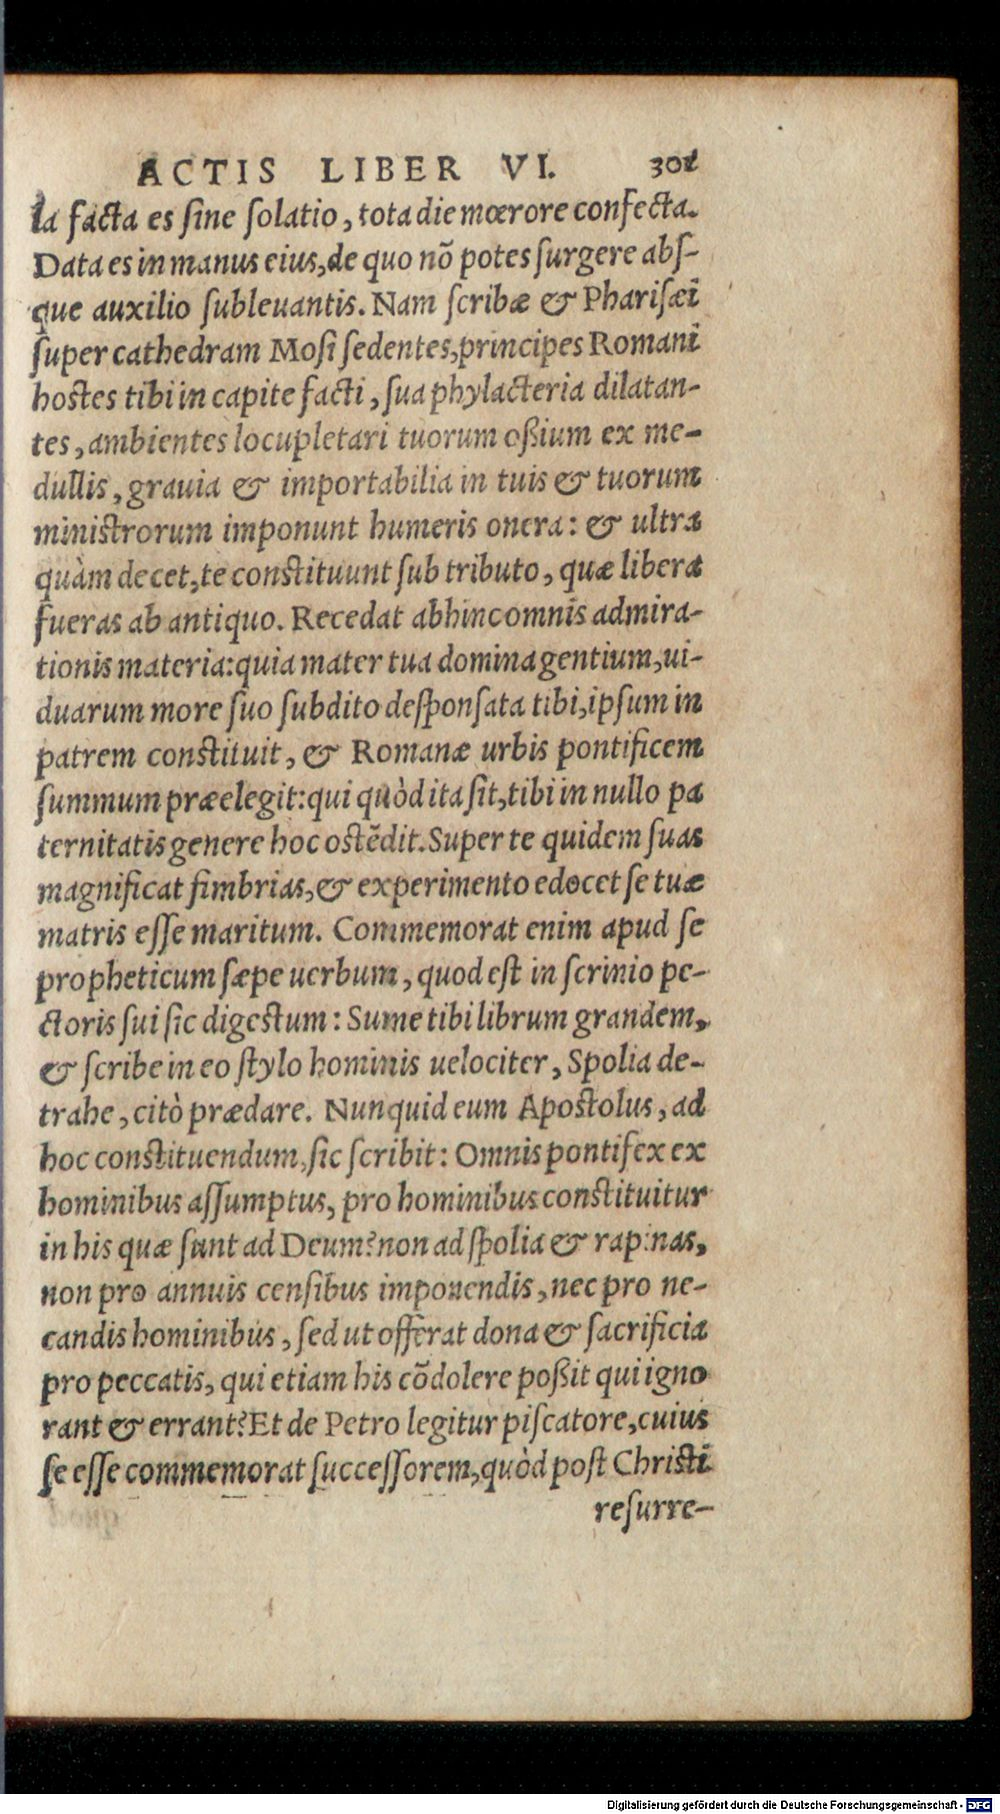 ACTIS LIBER VI. 301
la facta es sine solatio, tota die mœrore confecta.
Data es in manus eius, de quo nõ potes surgere abs-
que auxilio subleuantis. Nam scribæ & Pharisæi
super cathedram Mosi sedentes, principes Romani
hostes tibi in capite facti, sua phylacteria dilatan-
tes, ambientes locupletari tuorum oßium ex me-
dullis, grauia & importabilia in tuis & tuorum
ministrorum imponunt humeris onera: & ultra
quàm decet, te constituunt sub tributo, quæ libera
fueras ab antiquo. Recedat abhinc omnis admira-
tionis materia: quia mater tua domina gentium, ui-
duarum more suo subdito desponsata tibi, ipsum in
patrem constituit, & Romanæ urbis pontificem
summum præelegit: qui quòd ita sit, tibi in nullo pa
ternitatis genere hoc ostẽdit. Super te quidem suas
magnificat fimbrias, & experimento edocet se tuæ
matris esse maritum. Commemorat enim apud se
propheticum sæpe uerbum, quod est in scrinio pe-
ctoris sui sic digestum: Sume tibi librum grandem,
& scribe in eo stylo hominis uelociter, Spolia de-
trahe, citò prædare. Nunquid eum Apostolus, ad
hoc constituendum, sic scribit: Omnis pontifex ex
hominibus assumptus, pro hominibus constituitur
in his quæ sunt ad Deum? non ad spolia & rapinas,
non pro annuis censibus imponendis, nec pro ne-
candis hominibus, sed ut offerat dona & sacrificia
pro peccatis, qui etiam his cõdolere poßit qui igno
rant & errant? Et de Petro legitur piscatore, cuius
se esse commemorat successorem, quòd post Christi
resurre-
Digitalisierung gefördert durch die Deutsche Forschungsgemeinschaft - DFG